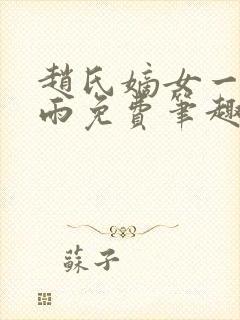 趙氏嫡女一
雨免費筆趣
蘇子